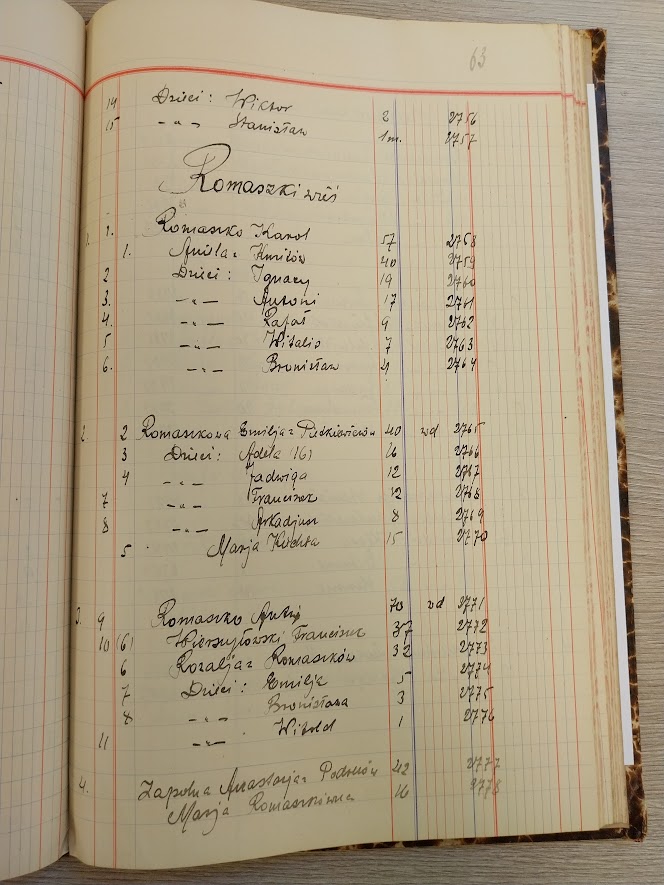 63
14 Dzieci: Wiktor 2 2756
15 -"- Stanisław 1m. 2757
Romaszki wieś
1. 1. Romaszko Karol 57 2758
1. z Kmitów 40 2759
2 Dzieci: Ignacy 19 2760
3. -"- Antoni 17 2761
4. -"- Rafał 9 2762
5 -"- Witalis 7 2763
6. -"- Bronisław 4 2764
2. 2 Romaszkowa Emilja z 40 wd 2765
3 Dzieci: Adela 16 2766
4 -"- Jadwiga 12 2767
7 -"- Franciszek 12 2768
8 -"- Arkadjusz 8 2769
5 Marja Kuchta 15 2770
3. 9 Romaszko 70 wd 2771
10 (6) Franciszek 37 2772
6 Rozalja z Romaszków 32 2773
7 Dzieci: Emilja 5 2774
8 -"- Bronisława 3 2775
11 -"- Witold 1 2776
4. Zapolna Anastazja z 42 2777
Marja Romaszkówna 16 2778